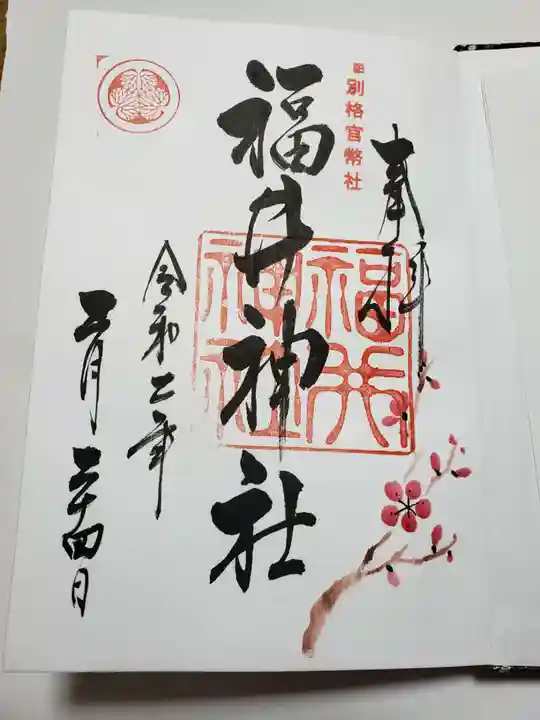 奉拝
別格官幣社
福井神社
福井
神社
令和二年
二月二十四日